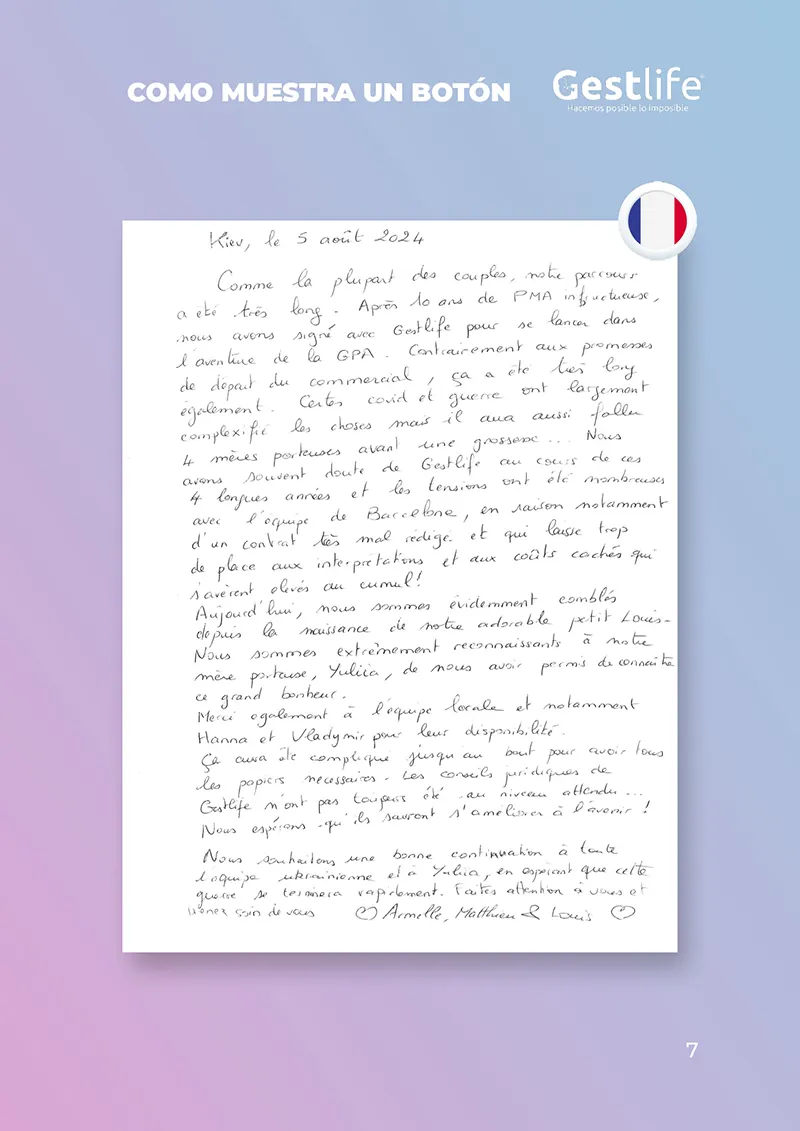 COMO MUESTRA UN BOTÓN
Gestlife
Hacemos posible lo imposible
Kiev, le 5 août 2024
Comme la plupart des couples, notre parcours
a été très long. Après 10 ans de PMA infructueuse,
nous avons signé avec Gestlife pour se lancer dans
l'aventure de la GPA. Contrairement aux promesses
de départ du commercial, ça a été très long
également. Certes covid et guerre ont largement
complexifié les choses mais il aura aussi fallu
4 mères porteuses avant une grossesse... Nous
avons souvent douté de Gestlife au cours de ces
4 longues années et les tensions ont été nombreuses
avec l'équipe de Barcelone, en raison notamment
d'un contrat très mal rédigé et qui laisse trop
de place aux interprétations et aux coûts cachés qui
s'avèrent élevés au cumul!
Aujourd'hui, nous sommes évidemment comblés
depuis la naissance de notre adorable petit Louis.
Nous sommes extrêmement reconnaissants à notre
mère porteuse, Yuliia, de nous avoir permis de connaître
ce grand bonheur.
Merci également à l'équipe locale et notamment
Hanna et Vladymir pour leur disponibilité.
Ça aura été compliqué jusqu'au bout pour avoir tous
les papiers nécessaires. Les conseils juridiques de
Gestlife n'ont pas toujours été au niveau attendu...
Nous espérons qu'ils sauront s'améliorer à l'avenir!
Nous souhaitons une bonne continuation à toute
l'équipe ukrainienne et à Yuliia, en espérant que cette
guerre se terminera rapidement. Faites attention à vous et
prenez soin de vous ♡ Armelle, Matthieu & Louis ♡
7